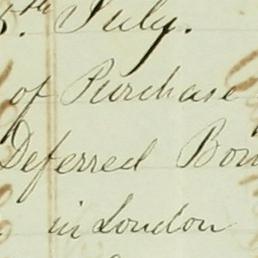 5.th July.
of Purchase
Deferred Bon
in London